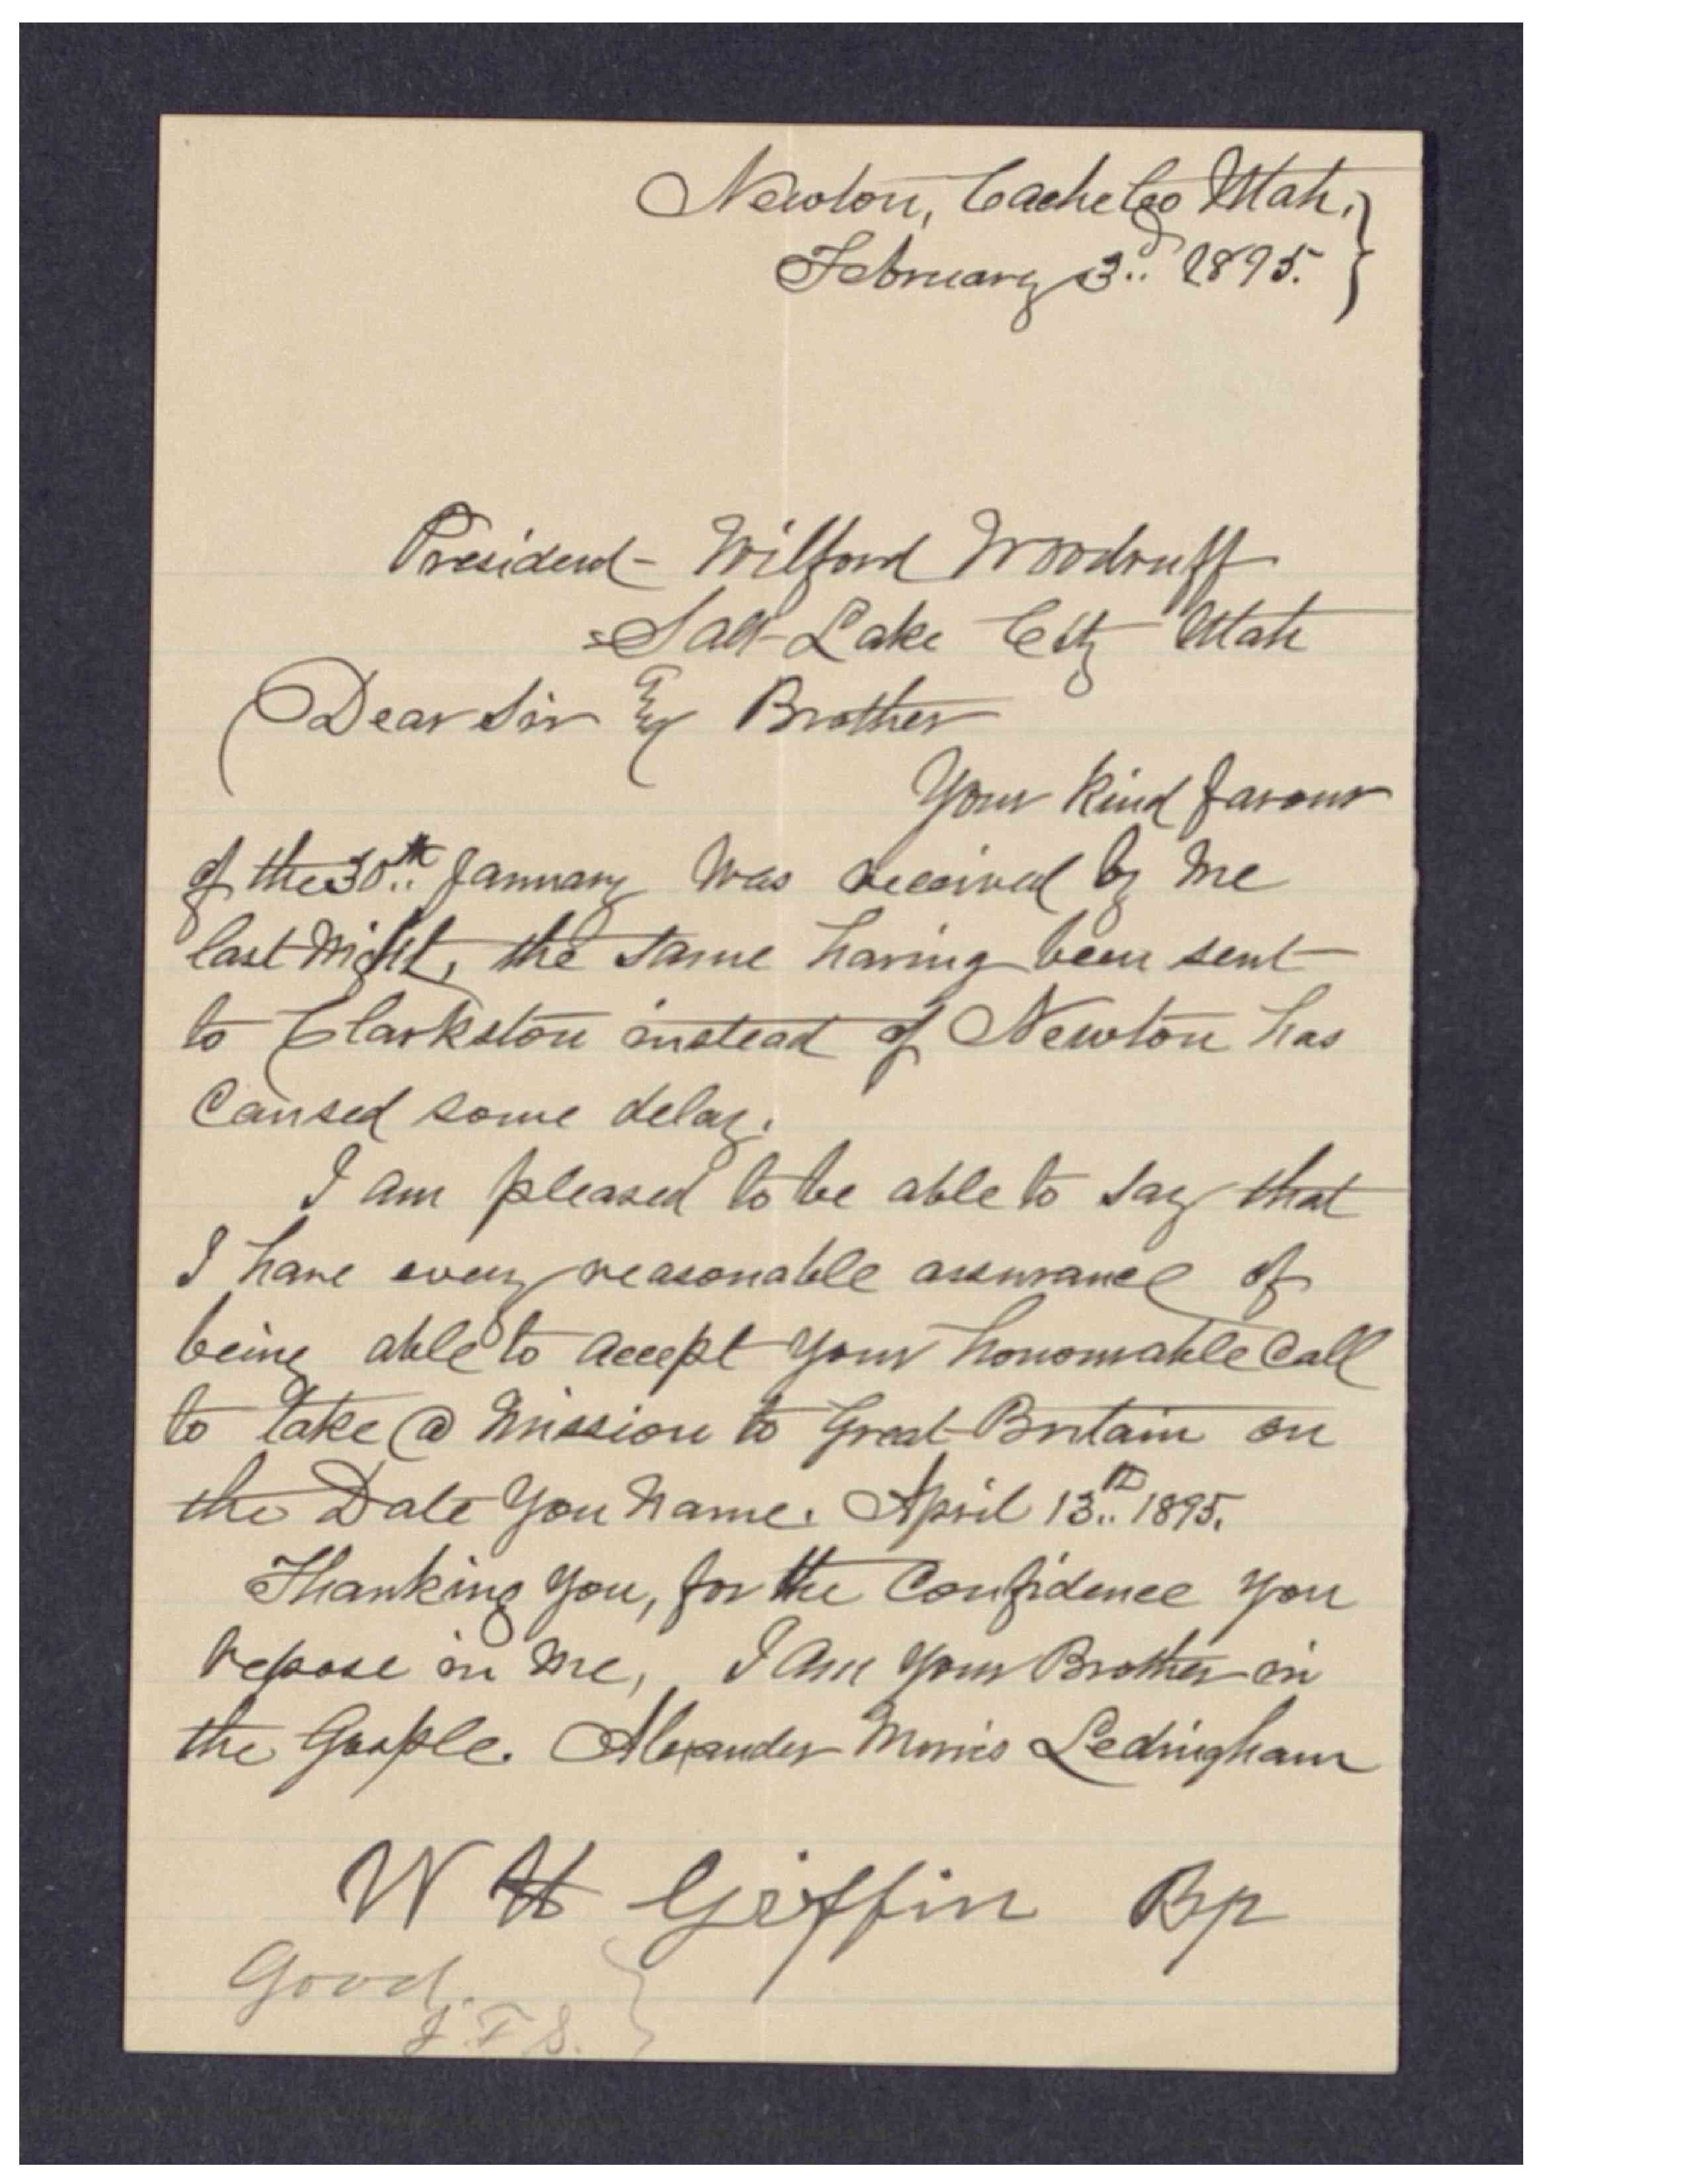 Newton, Cache Co Utah.
February 3d 1895.
President Wilford Woodruff
Salt Lake City Utah
Dear Sir & Brother
Your kind favour
of the 30th January was received by me
last night, the same having been sent
to Clarkston instead of Newton has
caused some delay.
I am pleased to be able to say that
I have every reasonable assurance of
being able to accept your honourable call
to take @ mission to Great Britain on
the Date you name. April 13th 1895.
Thanking you, for the Confidence you
repose in me, I am your Brother in
the Gosple. Alexander Morris Ledingham
W H Griffin Bp
Good.
J. F. S.